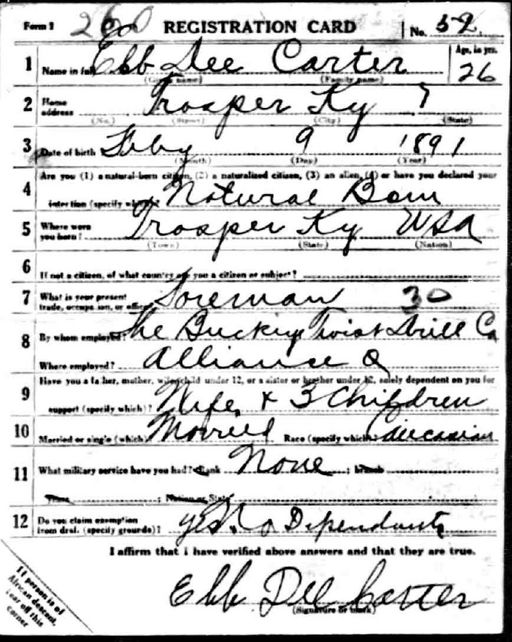 Form 1 REGISTRATION CARD No. 52
1 Name in full Ebb Dee Carter Age, in yrs. 26
(Given name) (Family name)
2 Home address Trosper Ky
(No.) (Street) (City) (State)
3 Date of birth Feby 9 1891
(Month) (Day) (Year)
Are you (1) a natural-born citizen, (2) a naturalized citizen, (3) an alien, (4) or have you declared your
4 intention (specify which)? Natural Born
5 Where were you born? Trosper Ky USA
(Town) (State) (Nation)
6 If not a citizen, of what country are you a citizen or subject?
7 What is your present trade, occupation, or office? Foreman 30
8 By whom employed? The Buckey Twist Drill Co
Where employed? Alliance O
Have you a father, mother, wife, child under 12, or a sister or brother under 12, solely dependent on you for
9 support (specify which)? Wife & 3 Children
10 Married or single (which)? Married Race (specify which)? Caucasian
11 What military service have you had? Rank None ; branch
Years ; Nation or State
12 Do you claim exemption from draft (specify grounds)? Yes. Dependants
I affirm that I have verified above answers and that they are true.
Ebb Dee Carter
(Signature or mark)
If person is of
African descent,
tear off this
corner